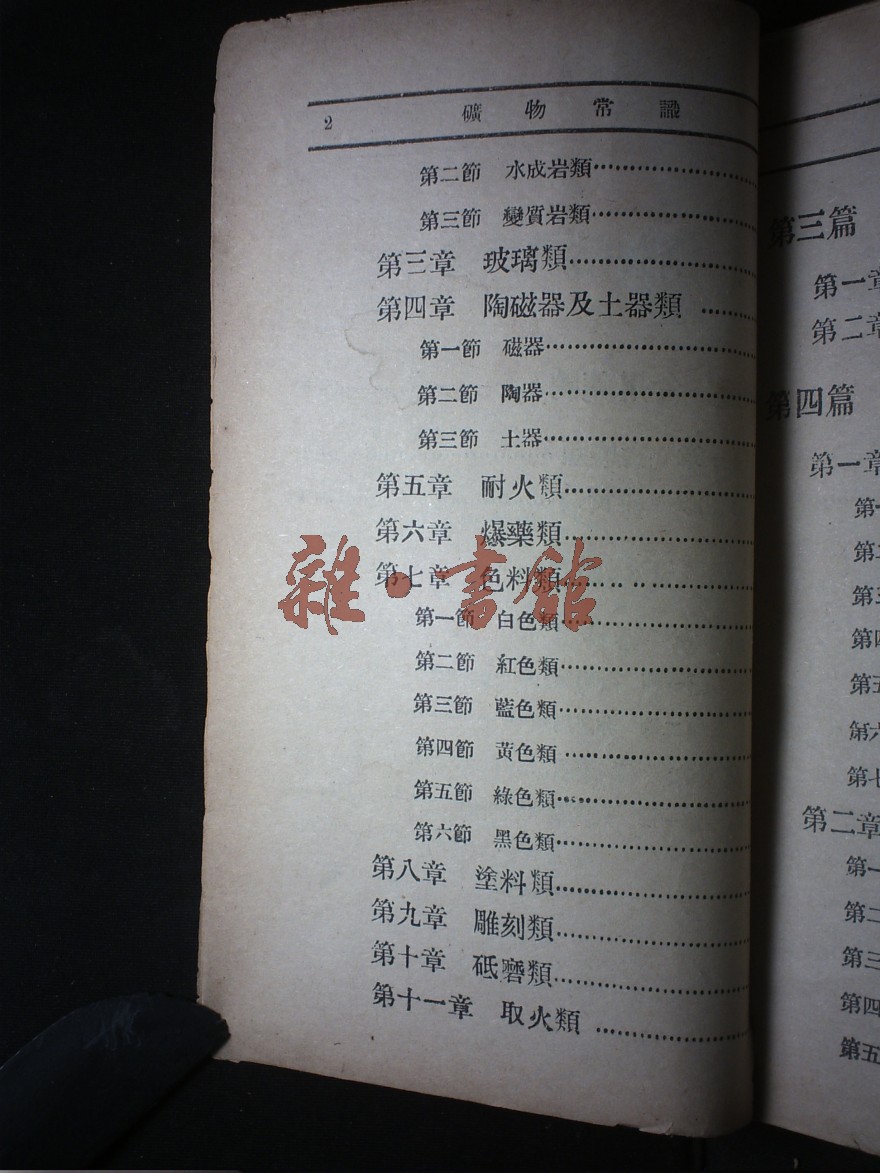 2 礦物常識
第二節 水成岩類
第三節 變質岩類
第三章 玻璃類
第四章 陶磁器及土器類
第一節 磁器
第二節 陶器
第三節 土器
第五章 耐火類
第六章 爆藥類
第七章 色料類
第一節 白色類
第二節 紅色類
第三節 藍色類
第四節 黃色類
第五節 綠色類
第六節 黑色類
第八章 塗料類
第九章 雕刻類
第十章 砥磨類
第十一章 取火類
雜·書館
第三篇
第一章
第二章
第四篇
第一章
第一
第二
第三
第四
第五
第六
第七
第二章
第一
第二
第三
第四
第五